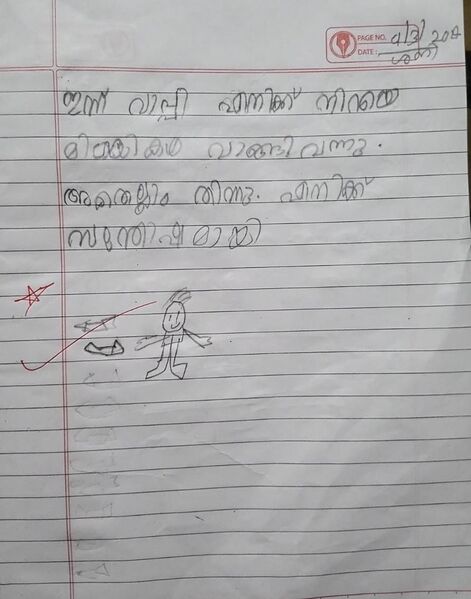 PAGE NO.
DATE: 4/3/202
ശനി
ഇന്ന് വാപ്പി എനിക്ക് നിറയെ
മിഠായികൾ വാങ്ങി വന്നു.
അതെല്ലാം തിന്നു. എനിക്ക്
സന്തോഷമായി